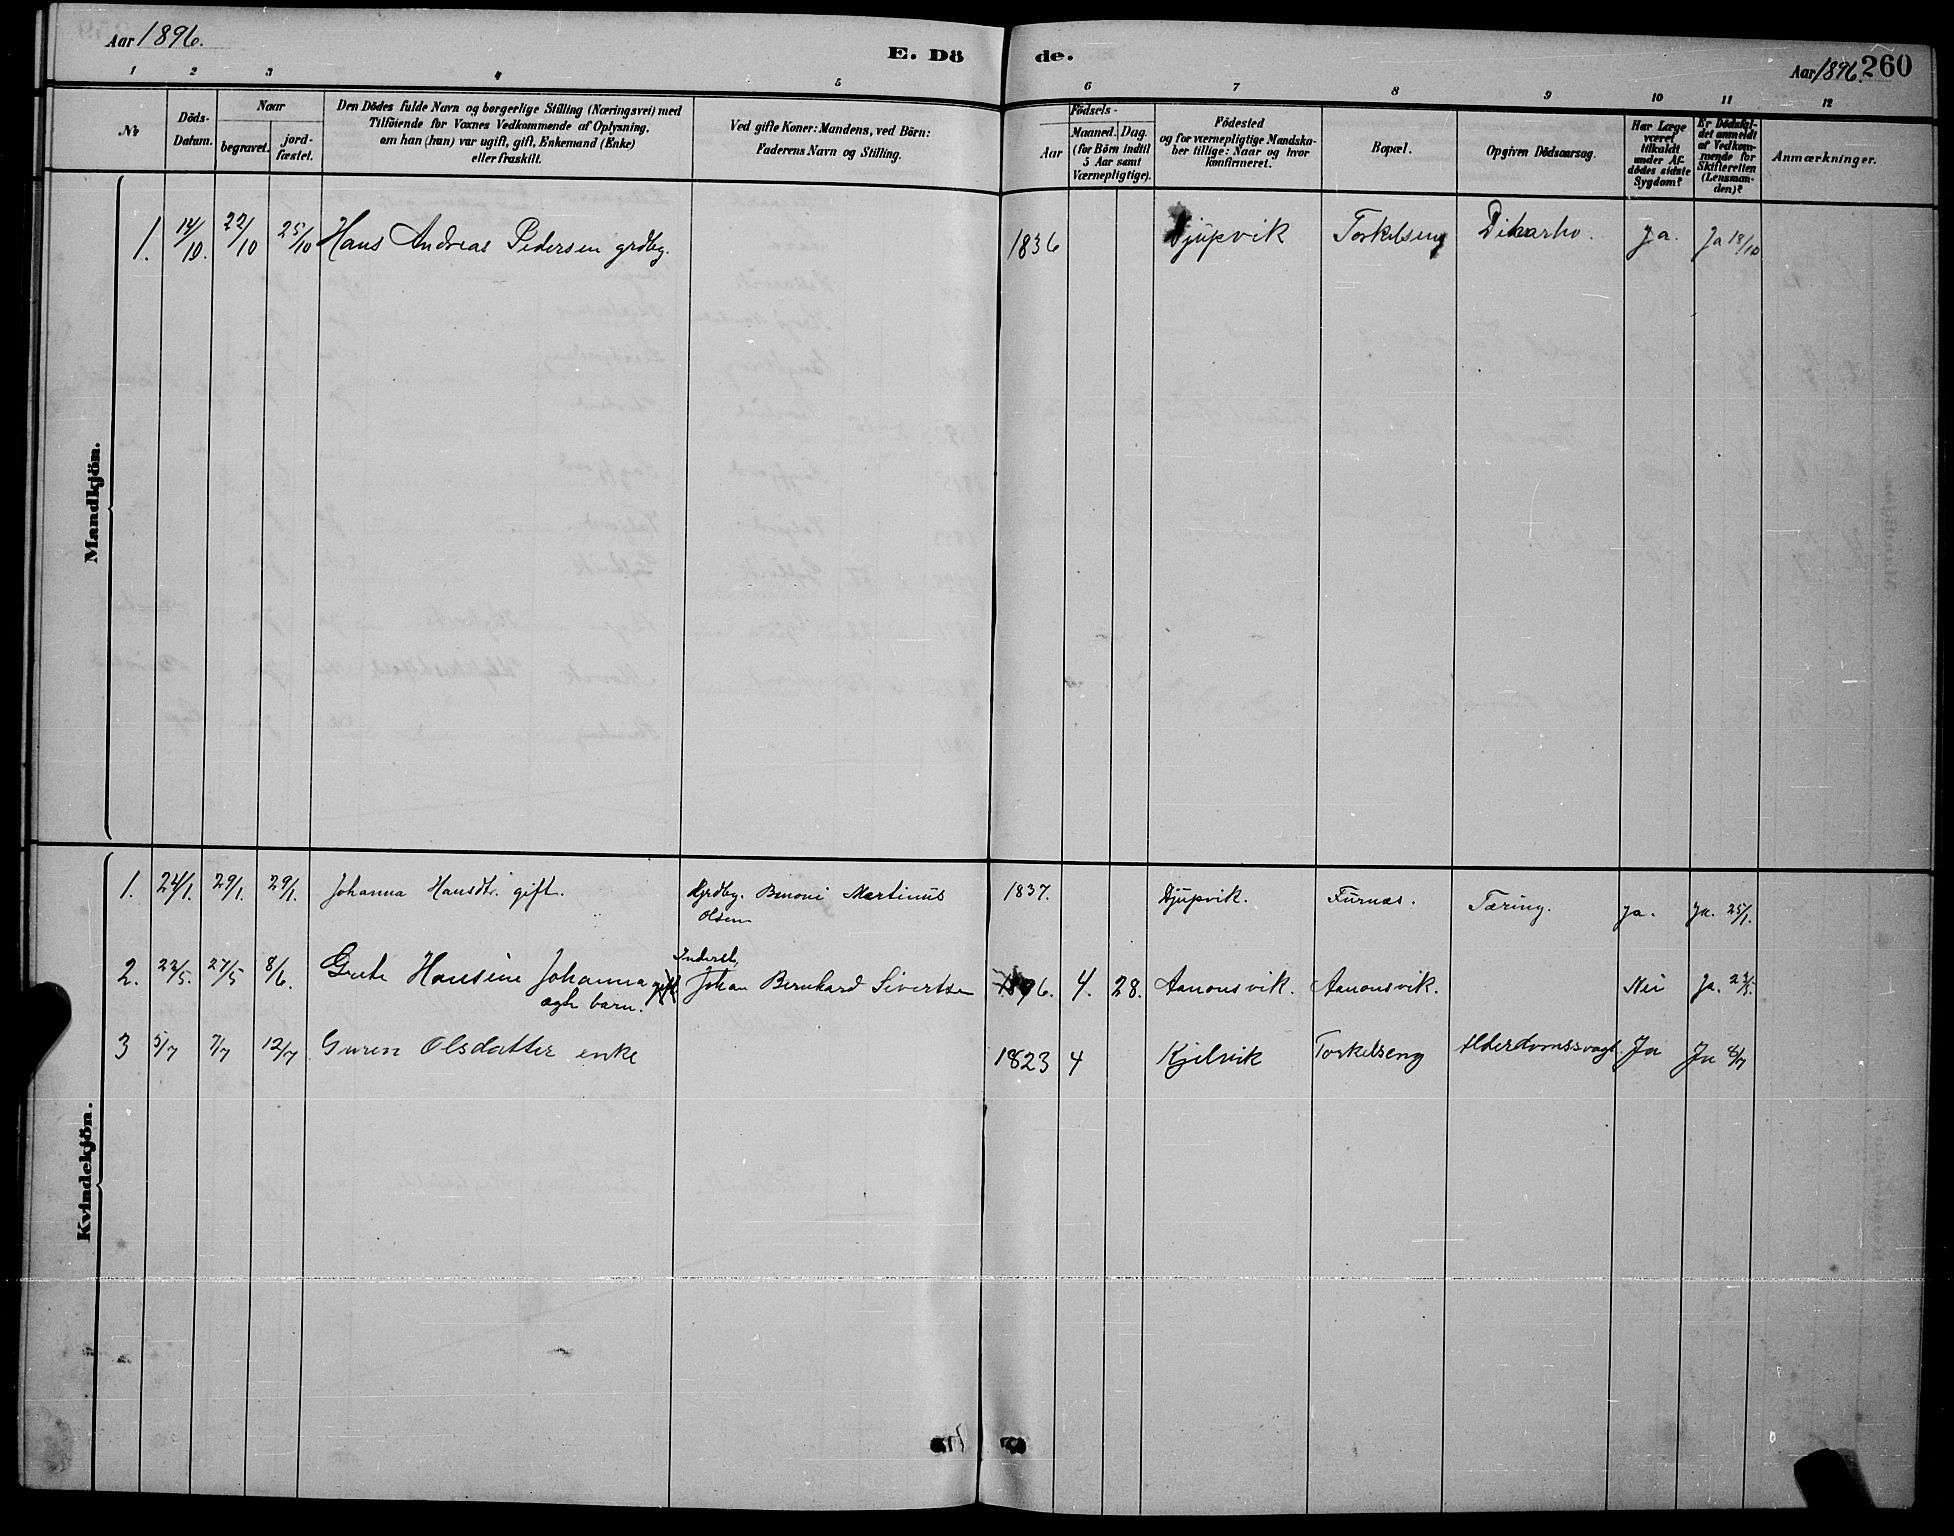 Aar 1896.
E. Dö
de.
Aar 1896. 260
1 2 3 4 5 6 7 8 9 10 11 12
No
Döds-
Datum.
Naar
begravet.
jord-
fæstet.
Den Dödes fulde Navn og borgerlige Stilling (Næringsvei) med
Tilföiende for Voxnes Vedkommende af Oplysning,
om han (hun) var ugift, gift, Enkemand (Enke)
eller fraskilt.
Ved gifte Koner: Mandens, ved Börn:
Faderens Navn og Stilling.
Födsels-
Aar
Maaned. Dag.
(for Börn indtil
5 Aar samt
Værnepligtige).
Födested
og for værnepligtige Mandska-
ber tillige: Naar og hvor
konfirmeret.
Bopæl.
Opgiven Dödsaarsag.
Har Læge
været
tilkaldt
under Af-
dödes sidste
Sygdom?
Er Dödsfal-
det anmeldt
af Vedkom-
mende for
Skifteretten
(Lensman-
den)?
Anmærkninger.
Mandkjön.
1. 14/10. 22/10 25/10 Hans Andreas Pedersen grdbg. 1836 Djupvik Torkelseng ja. Ja 18/10
Kvindekjön.
1. 24/1. 29/1. 29/1. Johanna Hansdtr. gift. Benoni Martinus 1837. Djupvik. Furnæs. Tæring. Ja. Ja. 25/1.
Olsen
Inderst,
2. 22/5. 27/5 8/6. Hansine Johanna gift Johan Bernhard Sivertsen 1896. 4. 28. Aanonsvik. Aanonsvik. Nei Ja. 23/5.
ægte barn.
3 5/7 7/7 12/7 Guren Olsdatter enke 1823 4 Kjelvik Torkelseng Alderdomssvagh. Ja Ja 8/7